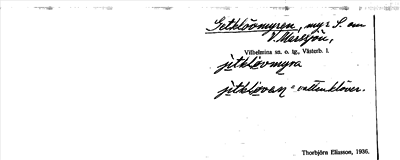 Getklövmyren, myr S. om
V. Marsjön,
Vilhelmina sn. o. tg., Västerb. l.
jitklövmyra
jitklövan = vattenklöver.
Thorbjörn Eliasson, 1936.